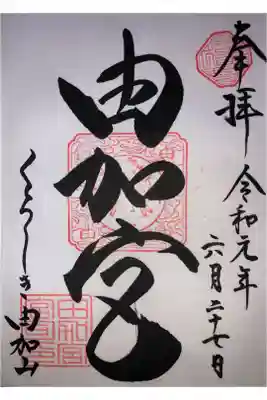 奉拝 令和元年
六月二十七日
由加宮
くらしき 由加山